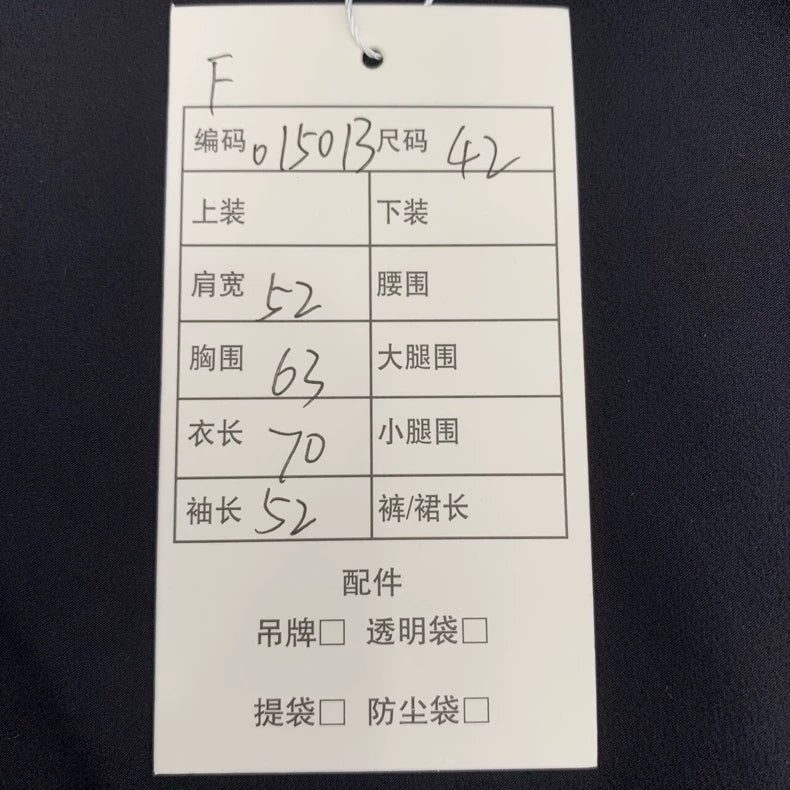 F
编码 015013 尺码 42
上装 下装
肩宽 52 腰围
胸围 63 大腿围
衣长 70 小腿围
袖长 52 裤/裙长
配件
吊牌□ 透明袋□
提袋□ 防尘袋□